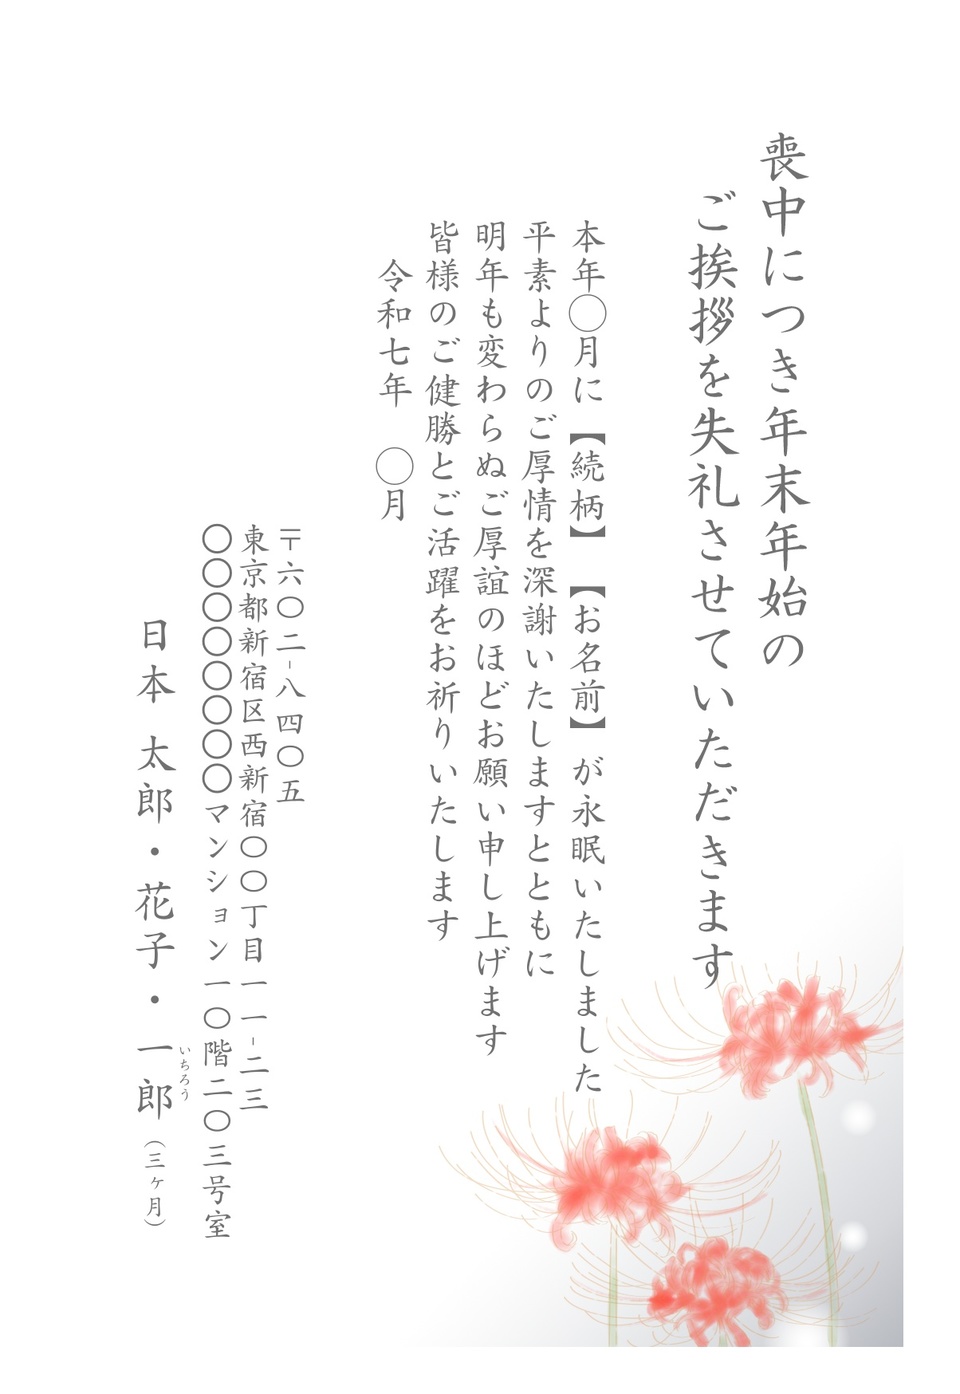 喪中につき年末年始の
ご挨拶を失礼させていただきます
本年◯月に【続柄】【お名前】が永眠いたしました
平素よりのご厚情を深謝いたしますとともに
明年も変わらぬご厚誼のほどお願い申し上げます
皆様のご健勝とご活躍をお祈りいたします
令和七年　◯月
〒六〇二-八四〇五
東京都新宿区西新宿〇〇丁目一一-二三
〇〇〇〇〇〇〇〇マンション一〇階二〇三号室
日本　太郎・花子・一郎（三ヶ月）
いちろう